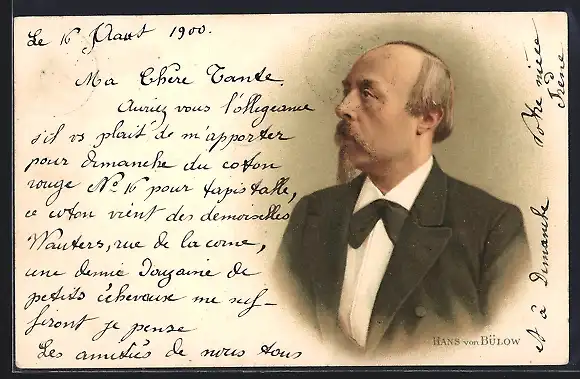 Le 16 Août 1900.
Ma Chère Tante.
Auriez vous l'obligeance
s'il vs plait de m'apporter
pour dimanche du coton
rouge No 16 pour tapis table,
ce coton vient des demoiselles
Wauters, rue de la corne,
une demie douzaine de
petits écheveaux me suf-
firont je pense
Les amitiés de nous tous
et à Dimanche
Votre nièce
Irène
HANS von BÜLOW